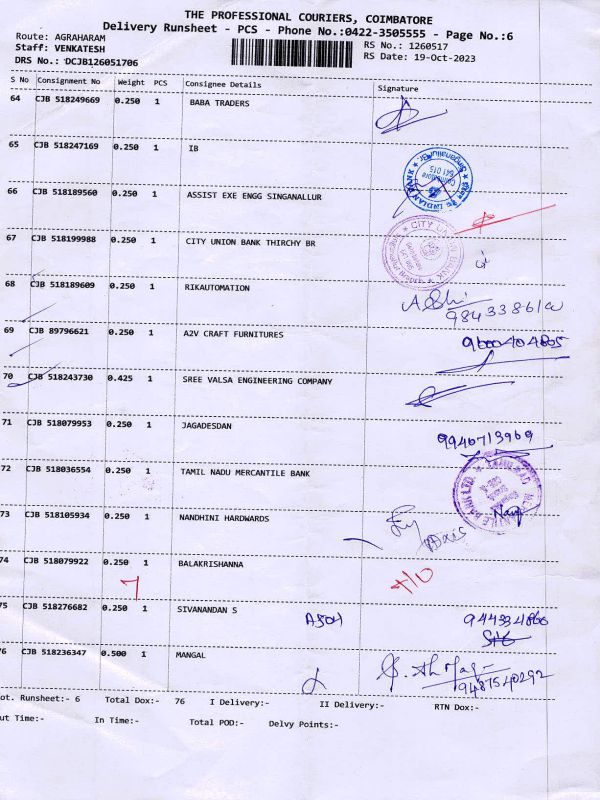 THE PROFESSIONAL COURIERS, COIMBATORE
Delivery Runsheet - PCS - Phone No.:0422-3505555 - Page No.:6
Route: AGRAHARAM
Staff: VENKATESH
RS No.: 1260517
DRS No.: DCJB126051706
RS Date: 19-Oct-2023
S No Consignment No Weight PCS Consignee Details Signature
64 CJB 518249669 0.250 1 BABA TRADERS
65 CJB 518247169 0.250 1 IB
INDIAN BANK
Coimbatore
641 015
66 CJB 518189560 0.250 1 ASSIST EXE ENGG SINGANALLUR
67 CJB 518199988 0.250 1 CITY UNION BANK THIRCHY BR
CITY UNION BANK
68 CJB 518189609 0.250 1 RIKAUTOMATION
69 CJB 89796621 0.250 1 A2V CRAFT FURNITURES
9600404805
70 CJB 518243730 0.425 1 SREE VALSA ENGINEERING COMPANY
71 CJB 518079953 0.250 1 JAGADESDAN
9940713969
72 CJB 518036554 0.250 1 TAMIL NADU MERCANTILE BANK
73 CJB 518105934 0.250 1 NANDHINI HARDWARDS
74 CJB 518079922 0.250 1 BALAKRISHANNA
75 CJB 518276682 0.250 1 SIVANANDAN S
76 CJB 518236347 0.500 1 MANGAL
9487540292
ot. Runsheet:- 6 Total Dox:- 76 I Delivery:- II Delivery:- RTN Dox:-
ut Time:- In Time:- Total POD:- Delvy Points:-